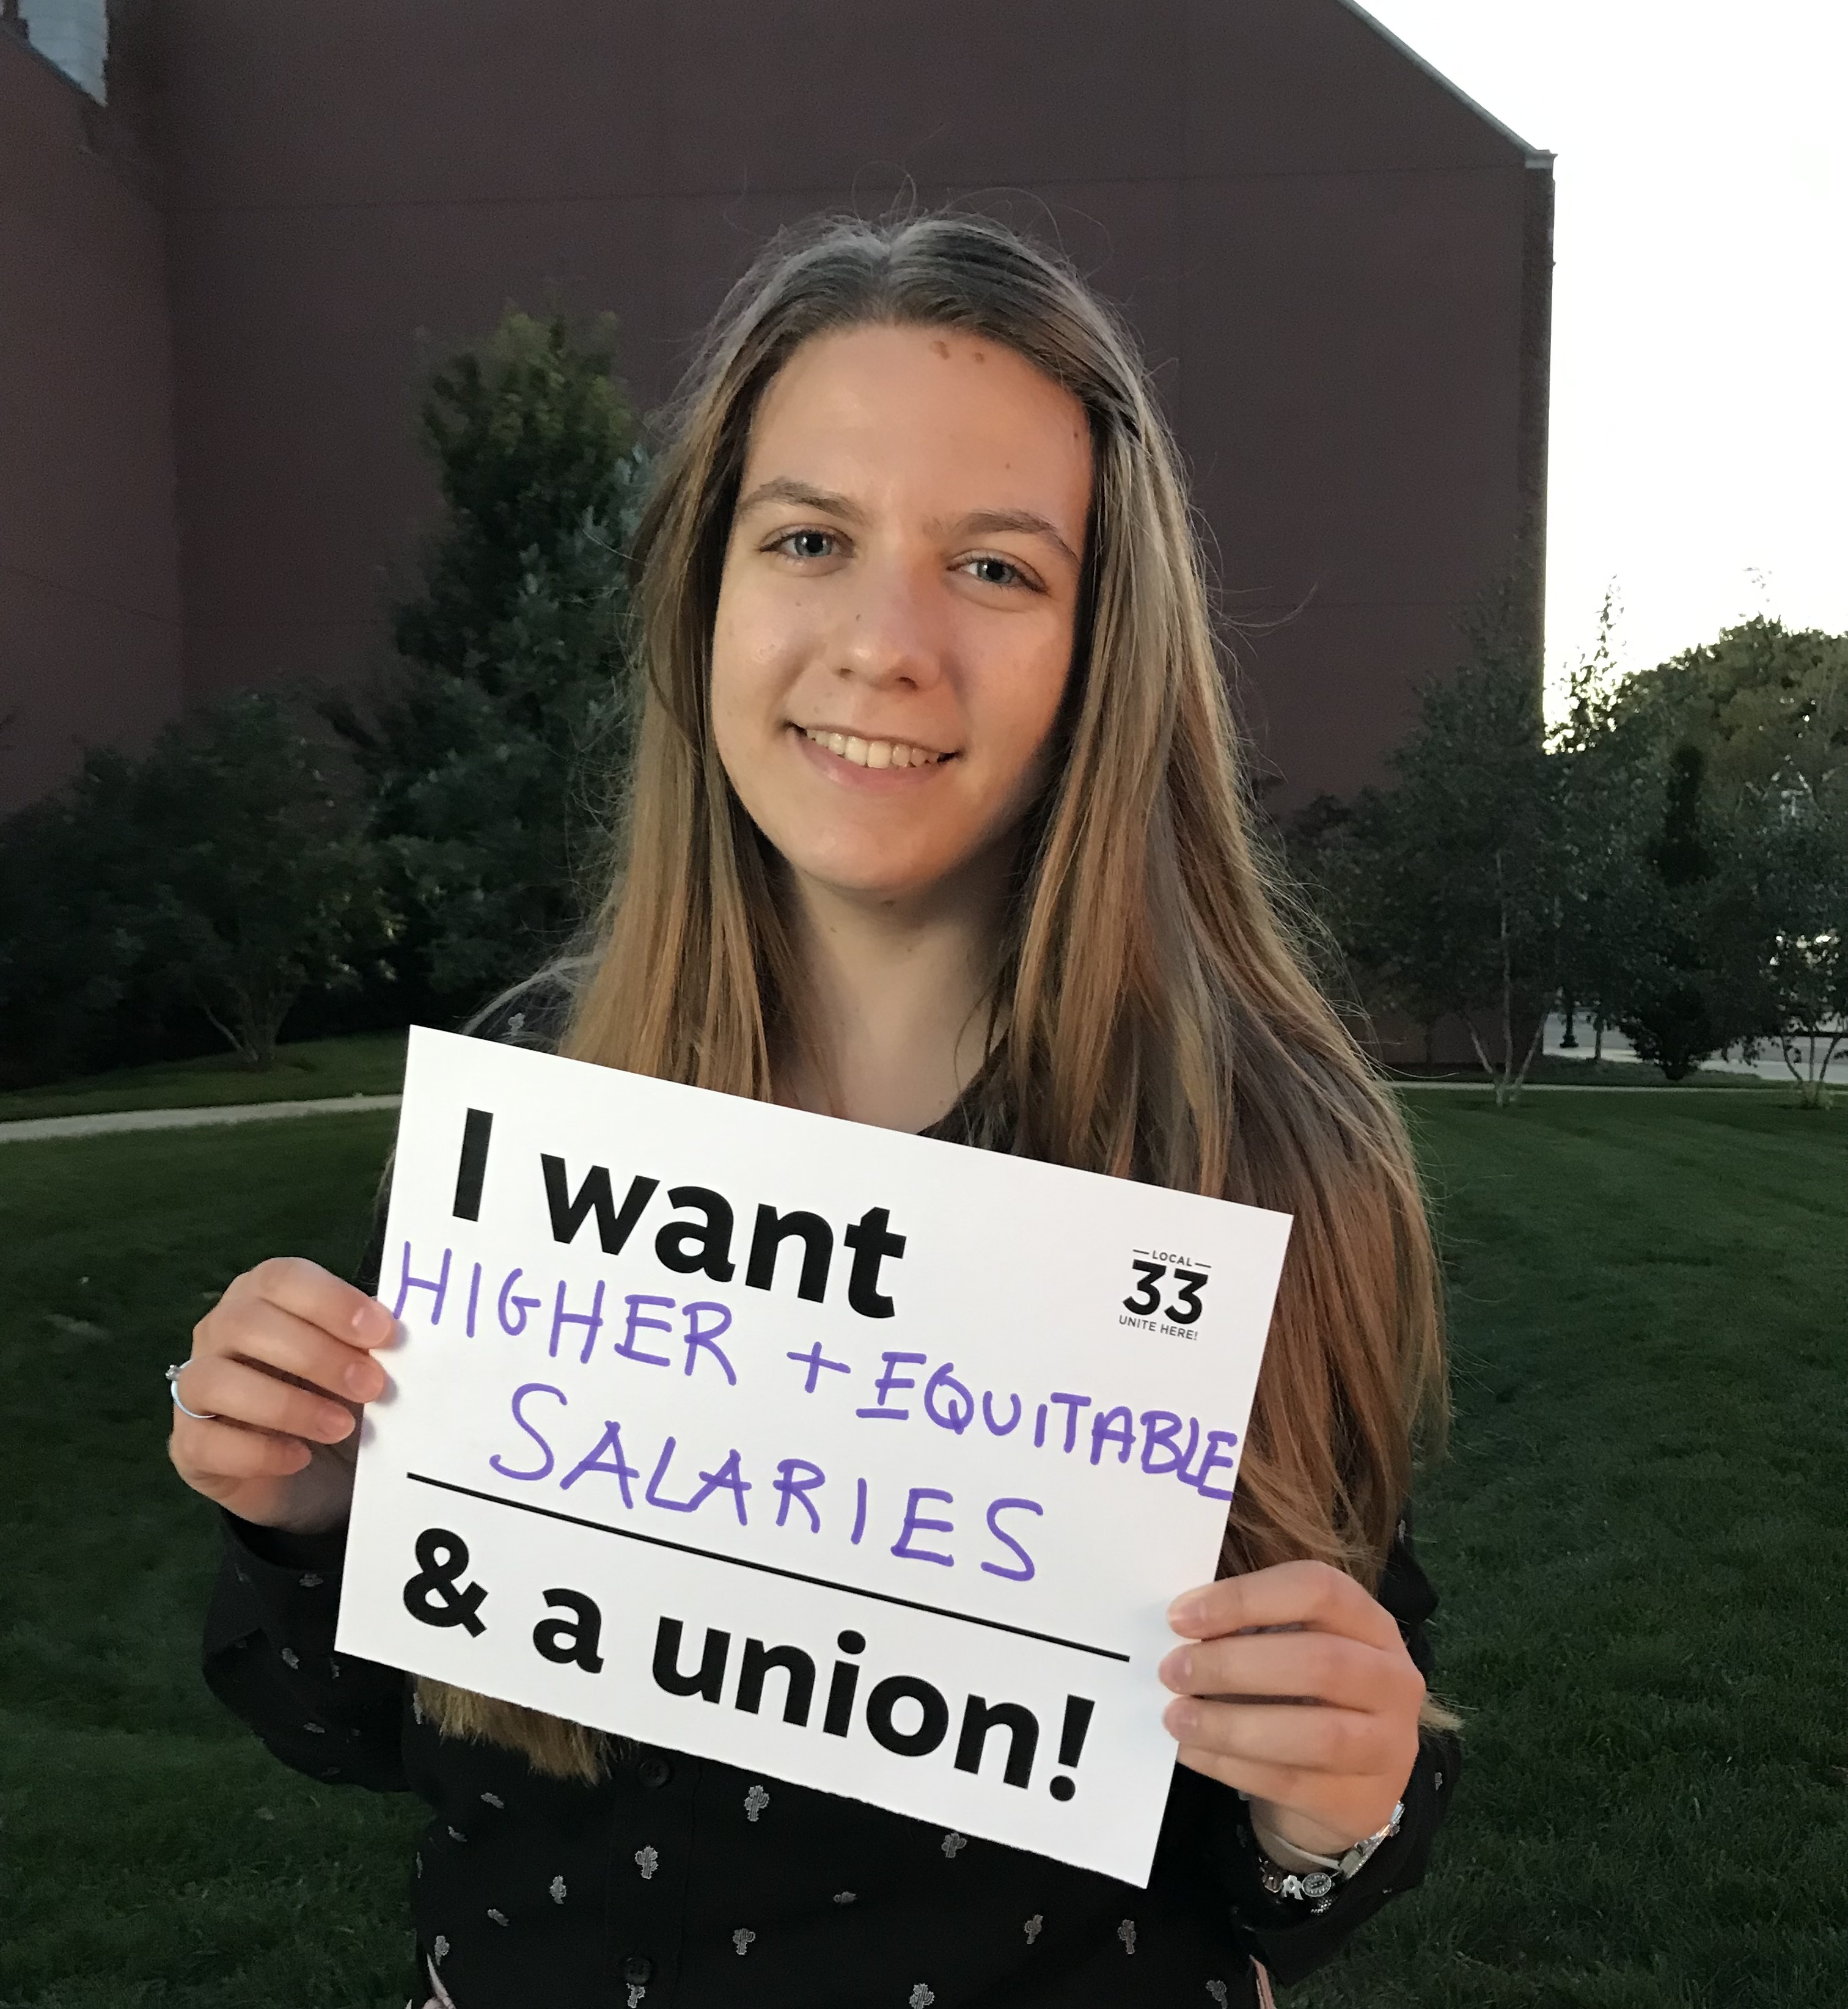 I want
— LOCAL —
33
UNITE HERE!
HIGHER + EQUITABLE
SALARIES
& a union!